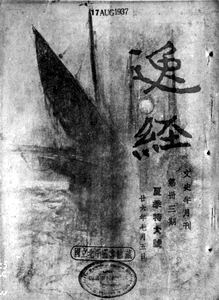 17 AUG 1937
逸
經
文史半月刊
第卅三期
夏季特大號
廿六年七月五日